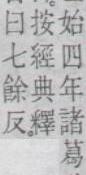 始四年諸葛
按經典釋
曰七餘反